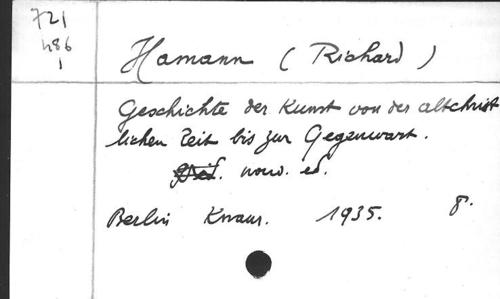 721
486
1
Hamann ( Richard )
Geschichte der Kunst von der altchrist
lichen Zeit bis zur Gegenwart.
nouv. ed.
Berlin Knaur. 1935. 8.